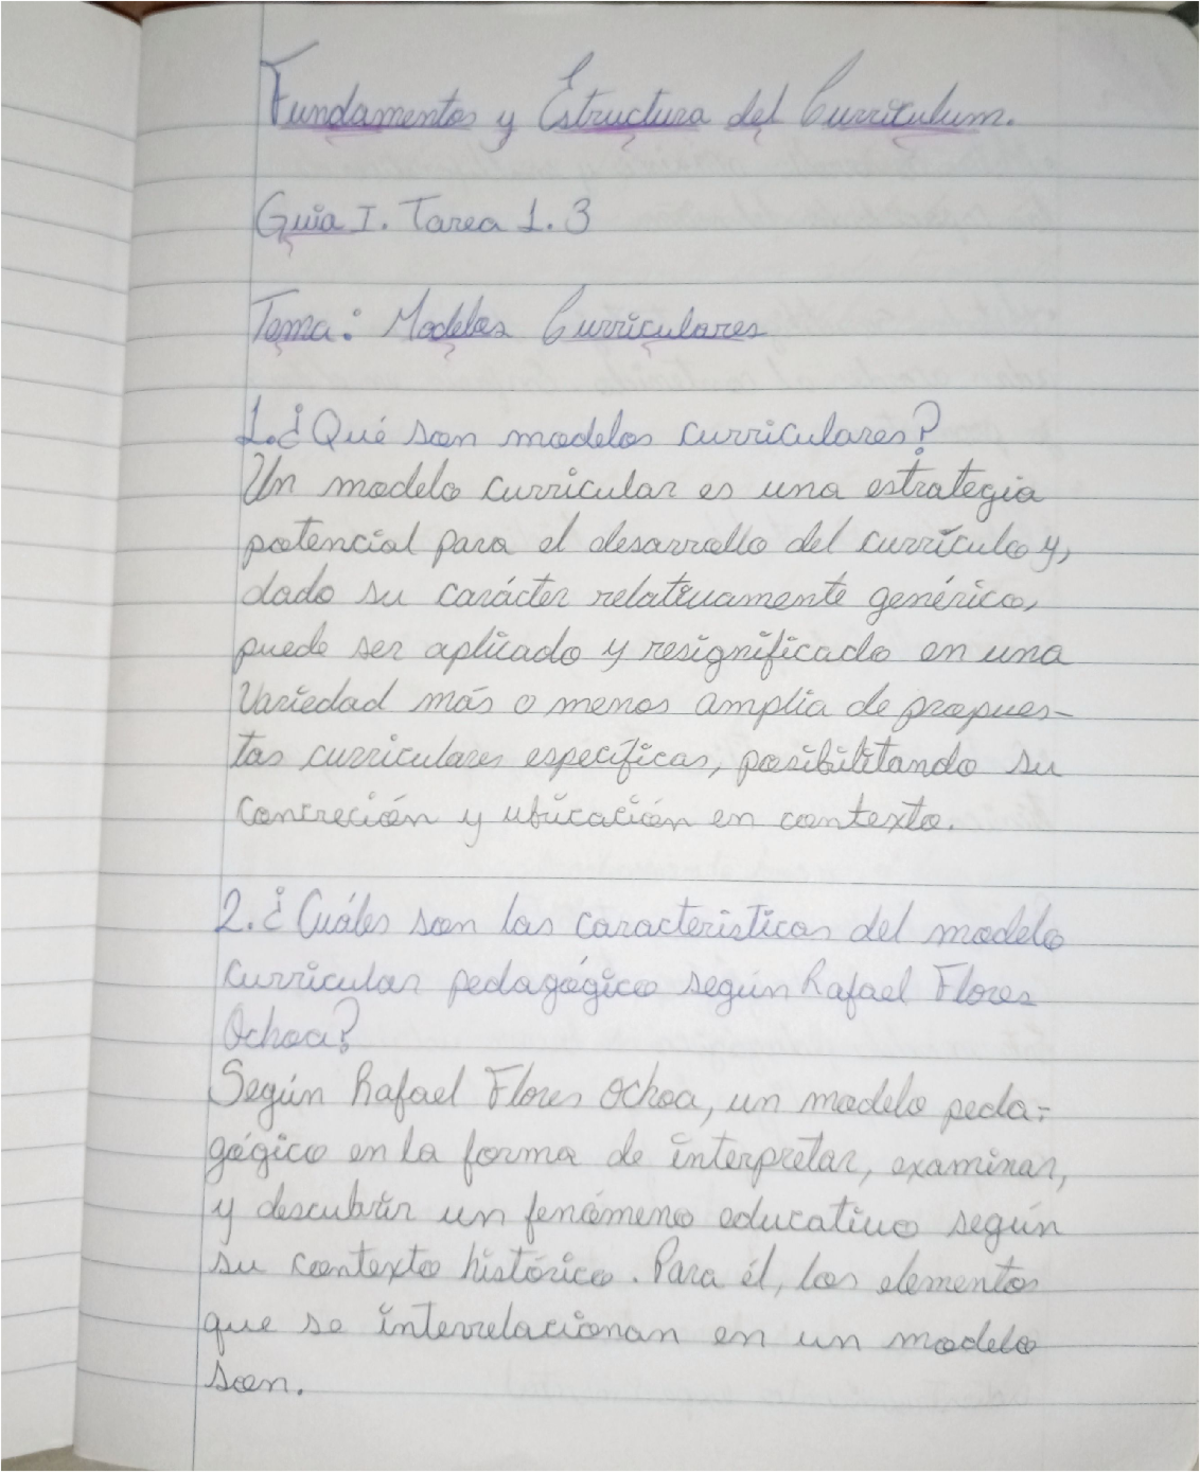 Fundamentos y Estructura del Curriculum.
Guia I. Tarea 1.3
Tema: Modelos Curriculares
1.¿Qué son modelos curriculares?
Un modelo curricular es una estrategia
potencial para el desarrollo del currículo y,
dado su carácter relativamente genérico,
puede ser aplicado y resignificado en una
variedad más o menos amplia de propues-
tas curriculares específicas, posibilitando su
concreción y ubicación en contexto.
2.¿Cuáles son las caracteristicas del modelo
curricular pedagógico según Rafael Flores
Ochoa?
Según Rafael Flores Ochoa, un modelo peda-
gógico en la forma de interpretar, examinar,
y descubrir un fenómeno educativo según
su contexto histórico. Para él, los elementos
que se interrelacionan en un modelo
son.